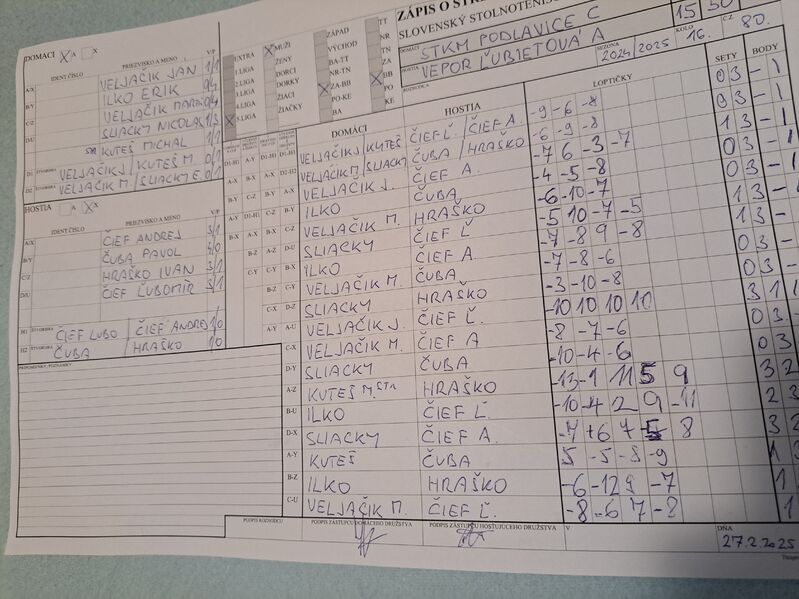 ZÁPIS O STR
SLOVENSKÝ STOLNOTENIS
DOMÁCI STKM PODLAVICE C
HOSTIA VEPOR ĽUBIETOVÁ A
SEZÓNA 2024/2025 KOLO 16. ČZ 80.
15 30
ROZHODCA
DOMÁCI X A X
IDENT.ČÍSLO PRIEZVISKO A MENO V/P
A/X VELJAČIK JAN 1/1
B/Y ILKO ERIK 0/4
C/Z VELJAČIK MAREK 0/4
D/U SLIACKY NICOLAS 1/3
KUTEŠ MICHAL 1/1
D1 ŠTVORHRA VELJAČIK J / KUTEŠ M 0/1
D2 ŠTVORHRA VELJAČIK M. / SLIACKY E. 0/1
EXTRA
1.LIGA
2.LIGA
3.LIGA
4.LIGA
X 5.LIGA
X MUŽI
ŽENY
DORCI
DORKY
ŽIACI
ŽIAČKY
ZÁPAD
VÝCHOD
BA-TT
NR-TN
X ZA-BB
PO-KE
BA
TT
NR
TN
ZA
X BB
PO
KE
HOSTIA A X X
IDENT.ČÍSLO PRIEZVISKO A MENO V/P
A/X ČIEF ANDREJ 3/1
B/Y ČUBA PAVOL 3/0
C/Z HRAŠKO IVAN 3/1
D/U ČIEF ĽUBOMÍR 3/1
H1 ŠTVORHRA ČIEF LUBO / ČIEF ANDREJ 1/0
H2 ŠTVORHRA ČUBA / HRAŠKO 1/0
PRIPOMIENKY, POZNÁMKY
DOMÁCI HOSTIA LOPTIČKY SETY BODY
VELJAČIK J / KUTEŠ ČIEF Ľ. / ČIEF A. -9 -6 -8 0 3 - 1
VELJAČIK M / SLIACKY ČUBA / HRAŠKO -6 -9 -8 0 3 - 1
VELJAČIK J. ČIEF A. -7 6 -3 -7 1 3 - 1
ILKO ČUBA -4 -5 -8 0 3 - 1
VELJAČIK M. HRAŠKO -6 -10 -7 0 3 - 1
SLIACKY ČIEF Ľ -5 10 -7 -5 1 3 -
ILKO ČIEF A. -7 -8 9 -8 1 3 -
VELJAČIK M. ČUBA -7 -8 -6 0 3 -
SLIACKY HRAŠKO -3 -10 -8 0 3 -
VELJAČIK J. ČIEF Ľ. -10 10 10 10 3 1 1
C-X VELJAČIK M. ČIEF A -8 -7 -6 0 3
D-Y SLIACKY ČUBA -10 -4 -6 0 3
A-Z KUTEŠ M. STR HRAŠKO -13 -9 11 5 9 3 2
B-U ILKO ČIEF Ľ -10 -4 2 9 -11 2 3
D-X SLIACKY ČIEF A. -7 +6 7 -5 8 3 2
A-Y KUTEŠ ČUBA 5 -5 -8 -9 1 3
B-Z ILKO HRAŠKO -6 -12 9 -7 1
C-U VELJAČIK M. ČIEF Ľ. -8 -6 7 -8 1
PODPIS ROZHODCU PODPIS ZÁSTUPCU DOMÁCEHO DRUŽSTVA PODPIS ZÁSTUPCU HOSŤUJÚCEHO DRUŽSTVA V DŇA
27.2.2025